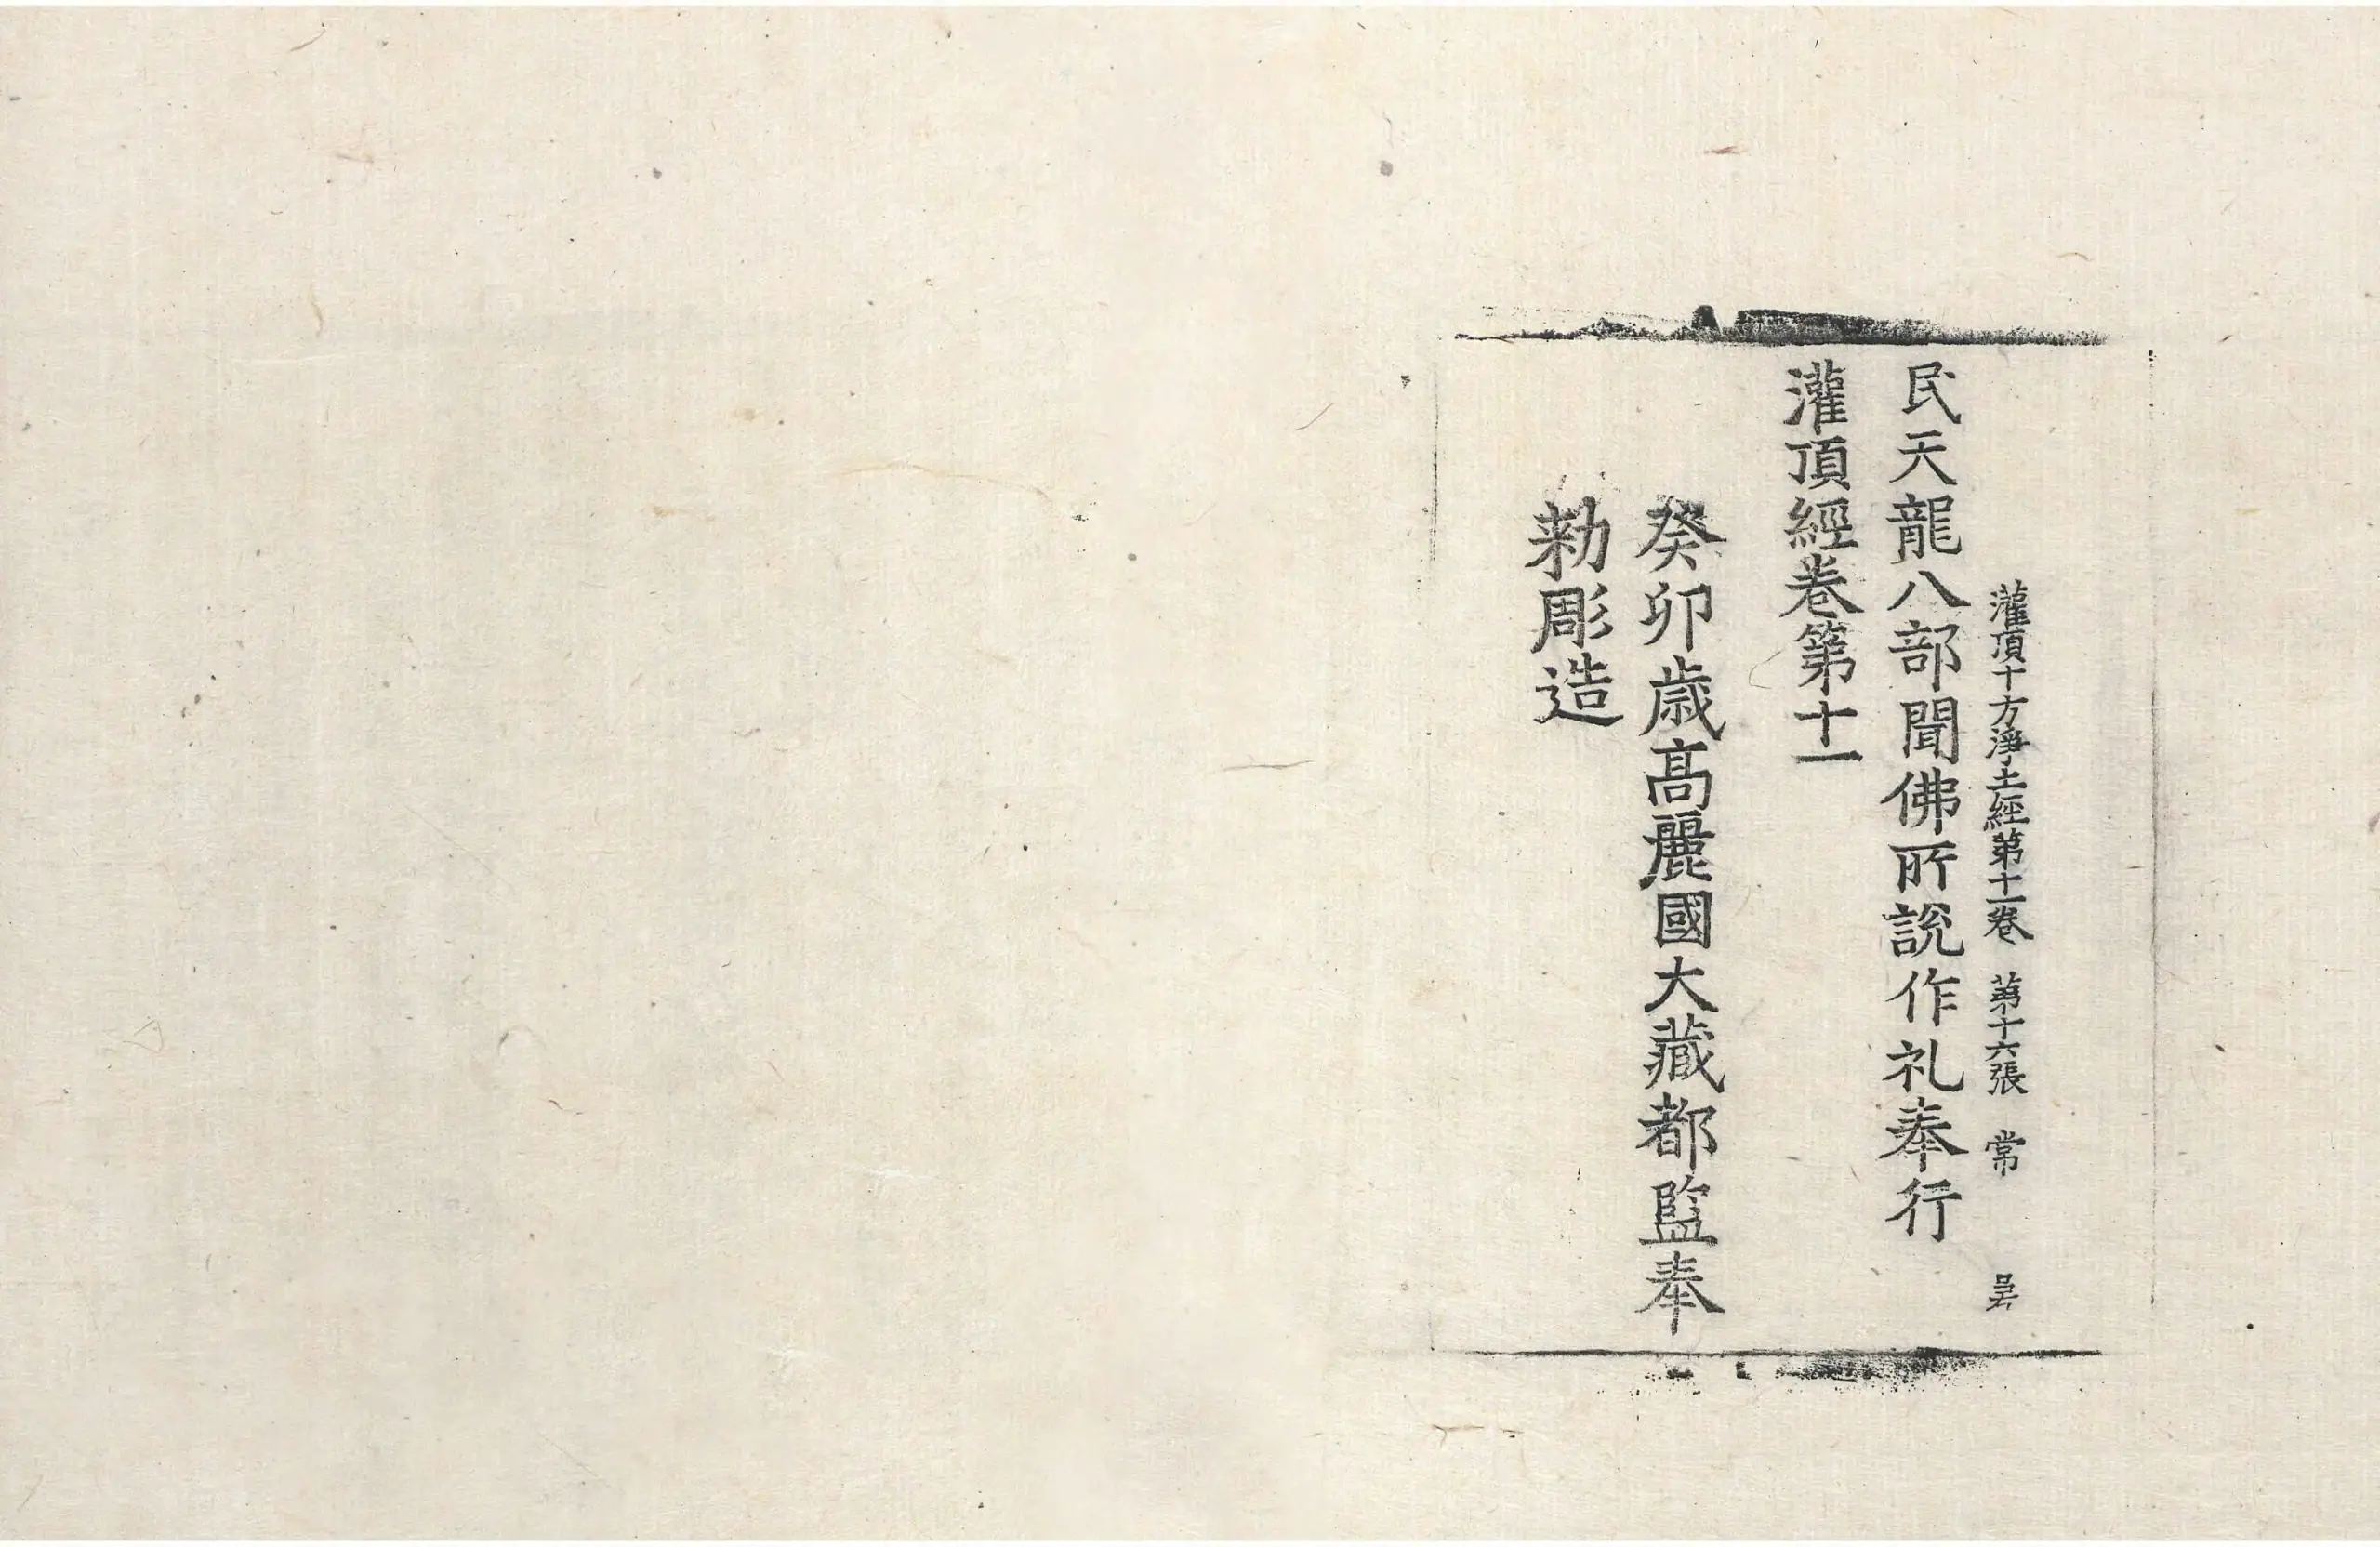 灌頂十方淨土經第十一卷 第十六張 常
民天龍八部聞佛所說作礼奉行
灌頂經卷第十一
癸卯歳高麗國大藏都監奉
勑彫造